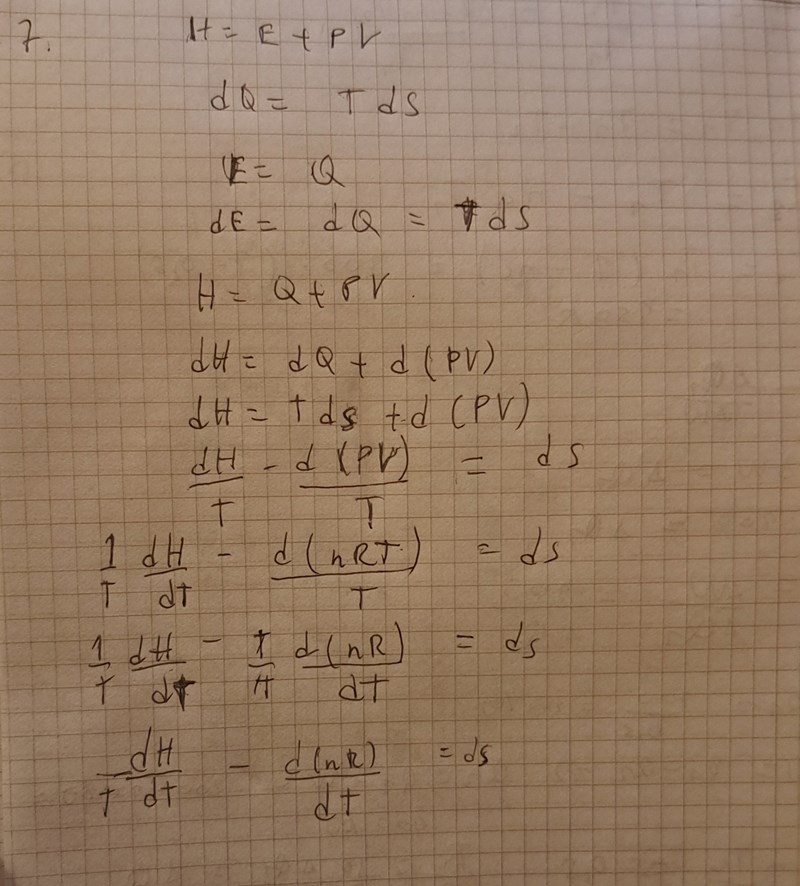 7. H = E + PV
dQ = T dS
E = Q
dE = dQ = T dS
H = Q + PV.
dH = dQ + d(PV)
dH = T ds + d(PV)
dH/T - d(PV)/T = dS
1/T dH/dT - d(nRT)/T = ds
1/T dH/dT - T/T d(nR)/dT = ds
/T dH/dT - d(nR)/dT = ds